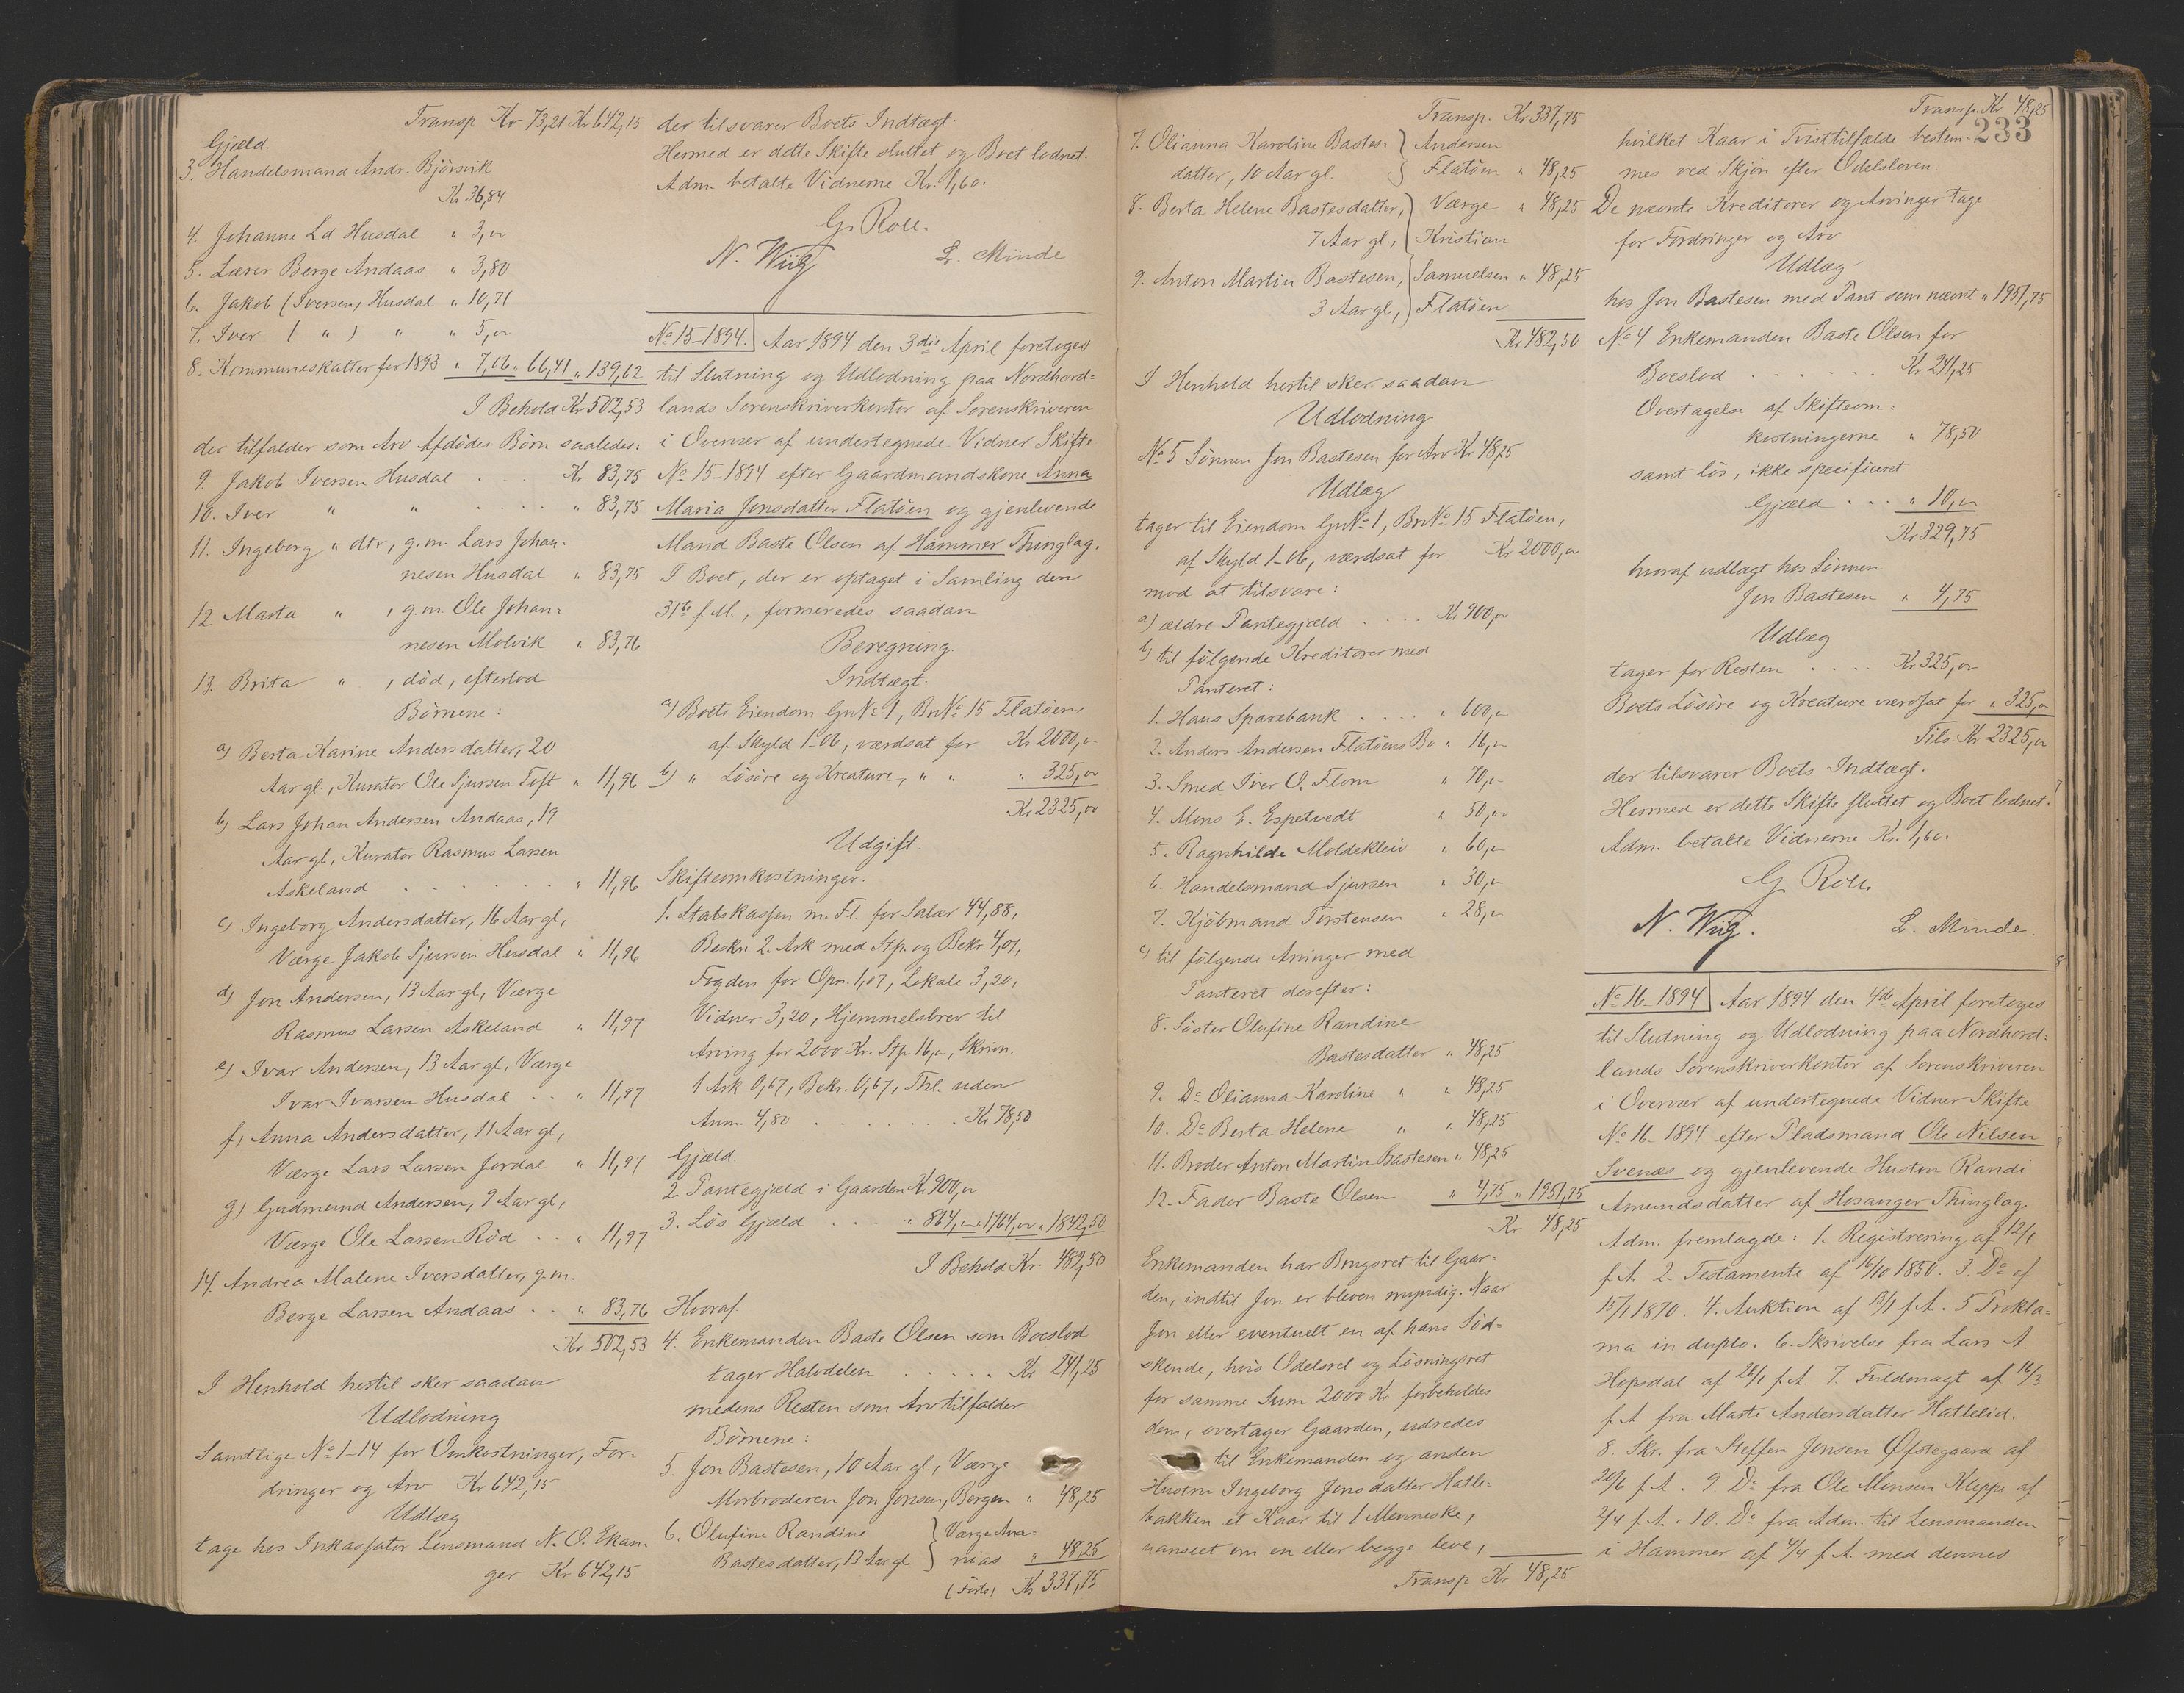 Transp Kr 73,21 Kr 642,15
Gjæld.
3. Handelsmand Andr. Bjørsvik
Kr 36,84
4. Johanne Ld Husdal " 3,00
5. Lærer Berge Andaas " 3,80
6. Jakob (Iversen, Husdal " 10,71
7. Iver ( " ) " " 5,00
8. Kommuneskatter for 1893 " 7,06 " 66,41 " 139,62
I Behold Kr 502,53
der tilfalder som Arv Afdødes Børn saaledes:
9. Jakob Iversen Husdal . . . Kr 83,75
10. Iver " " . . . . . " 83,75
11. Ingeborg " dtr, g.m. Lars Johan-
nesen Husdal " 83,75
12. Marta " , g.m. Ole Johan-
nesen Molvik " 83,76
13. Brita " , død, efterlod
Børnene:
a) Berta Karine Andersdatter, 20
Aar gl, Kurator Ole Sjursen Toft " 11,96
b) Lars Johan Andersen Andaas, 19
Aar gl, Kurator Rasmus Larsen
Askeland . . . . . . " 11,96
c) Ingeborg Andersdatter, 16 Aar gl,
Værge Jakob Sjursen Husdal " 11,96
d) Jon Andersen, 13 Aar gl, Værge
Rasmus Larsen Askeland " 11,97
e) Ivar Andersen, 13 Aar gl, Værge
Ivar Ivarsen Husdal . . " 11,97
f) Anna Andersdatter, 11 Aar gl,
Værge Lars Larsen Jordal " 11,97
g) Gudmund Andersen, 9 Aar gl,
Værge Ole Larsen Rød . . " 11,97
14. Andrea Malene Iversdatter, g.m.
Berge Larsen Andaas . . " 83,76
Kr 502,53
I Henhold hertil sker saadan
Udlodning
Samtlige No 1-14 for Omkostninger, For-
dringer og Arv Kr 642,15
Udlæg
tage hos Inkassator Lensmand N. O. Ekan-
ger Kr 642,15
der tilsvarer Boets Indtægt.
Hermed er dette Skifte sluttet og Boet lodnet.
Adm. betalte Vidnerne Kr. 1,60.
G. Roll.
N. Wiig L. Minde
No 15-1894. Aar 1894 den 3die April foretoges
til Slutning og Udlodning paa Nordhord-
lands Sorenskriverkontor af Sorenskriveren
i Overvær af undertegnede Vidner Skifte
No 15-1894 efter Gaardmandskone Anna
Maria Jonsdatter Flatøen og gjenlevende
Mand Baste Olsen af Hammer Thinglag.
I Boet, der er optaget i Samling den
31te f.M., formeredes saadan
Beregning.
Indtægt.
a) Boets Eiendom GnNo 1, BnNo 15 Flatøen,
af Skyld 1-06, værdsat for Kr 2000,00
b) " Løsøre og Kreature, " " " 325,00
Kr 2325,00
Udgift.
Skifteomkostninger.
1. Statskassen m. Fl. for Salær 44,88,
Beskr. 2 Ark med Stp. og Bekr. 4,01,
Fogden for Opn. 1,07, Lokale 3,20,
Vidner 3,20, Hjemmelsbrev til
Arving for 2000 Kr. Stp. 16,00, Skrivn.
1 Ark 0,67, Bekr. 0,67, Thl. uden
Anm. 4,80 . . . . . . . Kr 78,50
Gjæld.
2. Pantegjæld i Gaarden Kr. 900,00
3. Løs Gjæld . . . " 864,00 " 1764,00 " 1842,50
I Behold Kr. 482,50
Hvoraf
4. Enkemanden Baste Olsen som Boeslod
tager Halvdelen . . . . . Kr 241,25
medens Resten som Arv tilfalder
Børnene:
5. Jon Bastesen, 10 Aar gl., Værge
Morbroderen Jon Jonsen, Bergen " 48,25
6. Olufine Randine } Værge Ana-
Bastesdatter, 13 Aar gl } nias " 48,25
(Førts) Kr 337,75
Transp. Kr 337,75
7. Olianna Karoline Bastes- } Andersen
datter, 10 Aar gl. } Flatøen " 48,25
8. Berta Helene Bastesdatter, } Værge " 48,25
7 Aar gl., ( Kristian
9. Anton Martin Bastesen, { Samuelsen " 48,25
3 Aar gl, ) Flatøen
Kr 482,50
I Henhold hertil sker saadan
Udlodning
No 5 Sønnen Jon Bastesen for Arv Kr 48,25
Udlæg
tager til Eiendom GnNo 1, BnNo 15 Flatøen,
af Skyld 1-06, værdsat for Kr 2000,00
mod at tilsvare:
a) ældre Pantegjæld . . . . Kr 900,00
b) til følgende Kreditorer med
Panteret:
1. Haus Sparebank . . . . " 600,00
2. Anders Andersen Flatøens Bo " 16,00
3. Smed Iver O. Flom " 70,00
4. Mons E. Espetvedt " 50,00
5. Ragnhilde Moldekleiv " 60,00
6. Handelsmand Sjursen " 30,00
7. Kjøbmand Torstensen " 28,00
c) til følgende Arvinger med
Panteret derefter:
8. Søster Olufine Randine
Bastesdatter " 48,25
9. Do Olianna Karoline " " 48,25
10. Do Berta Helene " " 48,25
11. Broder Anton Martin Bastesen " 48,25
12. Fader Baste Olsen " 4,75 " 1951,75
Kr 48,25
Enkemanden har Brugsret til Gaar-
den, indtil Jon er bleven myndig. Naar
Jon eller eventuelt en af hans Sød-
skende, hvis Odelsret og Løsningsret
for samme Sum 2000 Kr forbeholdes
dem, overtager Gaarden, udredes
til Enkemanden og anden
Hustru Ingeborg Jensdatter Hatle-
bakken et Kaar til 1 Menneske,
uanseet om en eller begge leve,
Transp Kr 48,25
Transp. Kr 48,25
233
hvilket Kaar i Tvisttilfælde bestem-
mes ved Skjøn efter Odelsloven.
De nævnte Kreditorer og Arvinger tage
for Fordringer og Arv
Udlæg
hos Jon Bastesen med Pant som nævnt " 1951,75
No 4 Enkemanden Baste Olsen for
Boeslod . . . . . . Kr 241,25
Overtagelse af Skifteom-
kostningerne " 78,50
samt løs, ikke specificeret
Gjæld . . . " 10,00
Kr 329,75
hvoraf udlagt hos Sønnen
Jon Bastesen " 4,75
Udlæg
tager for Resten . . . . Kr 325,00
Boets Løsøre og Kreature værdsat for " 325,00
Tils. Kr 2325,00
der tilsvarer Boets Indtægt.
Hermed er dette Skifte sluttet og Boet lodnet.
Adm. betalte Vidnerne Kr. 1,60.
G. Roll.
N. Wiig. L. Minde.
No 16-1894 Aar 1894 den 4de April foretoges
til Slutning og Udlodning paa Nordhord-
lands Sorenskriverkontor af Sorenskriveren
i Overvær af undertegnede Vidner Skifte
No 16-1894 efter Pladsmand Ole Nilsen
Svenæs og gjenlevende Hustru Randi
Amundsdatter af Hosanger Thinglag.
Adm. fremlagde: 1. Registrering af 12/1
f.A. 2. Testamente af 16/10 1850. 3. Do af
15/1 1870. 4. Auktion af 13/1 f.A. 5 Prokla-
ma in duplo. 6. Skrivelse fra Lars A.
Hopsdal af 26/1 f.A. 7. Fuldmagt af 16/3
f.A fra Marte Andersdatter Hattelid.
8. Skr. fra Steffen Jonsen Øfstegaard af
20/6 f.A. 9. Do fra Ole Monsen Kleppe af
2/4 f.A. 10. Do fra Adm. til Lensmanden
i Hammer af 4/4 f.A. med dennes